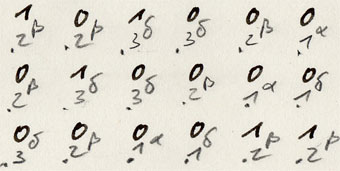 1 0 1 0 0 0
.2β .2β .3δ .3δ .2β .1α
0 1 0 0 0 0
.2β .3δ .3δ .2β .1α .1δ
0 0 0 0 1 1
.3δ .2β .1α .1δ .2β .2β